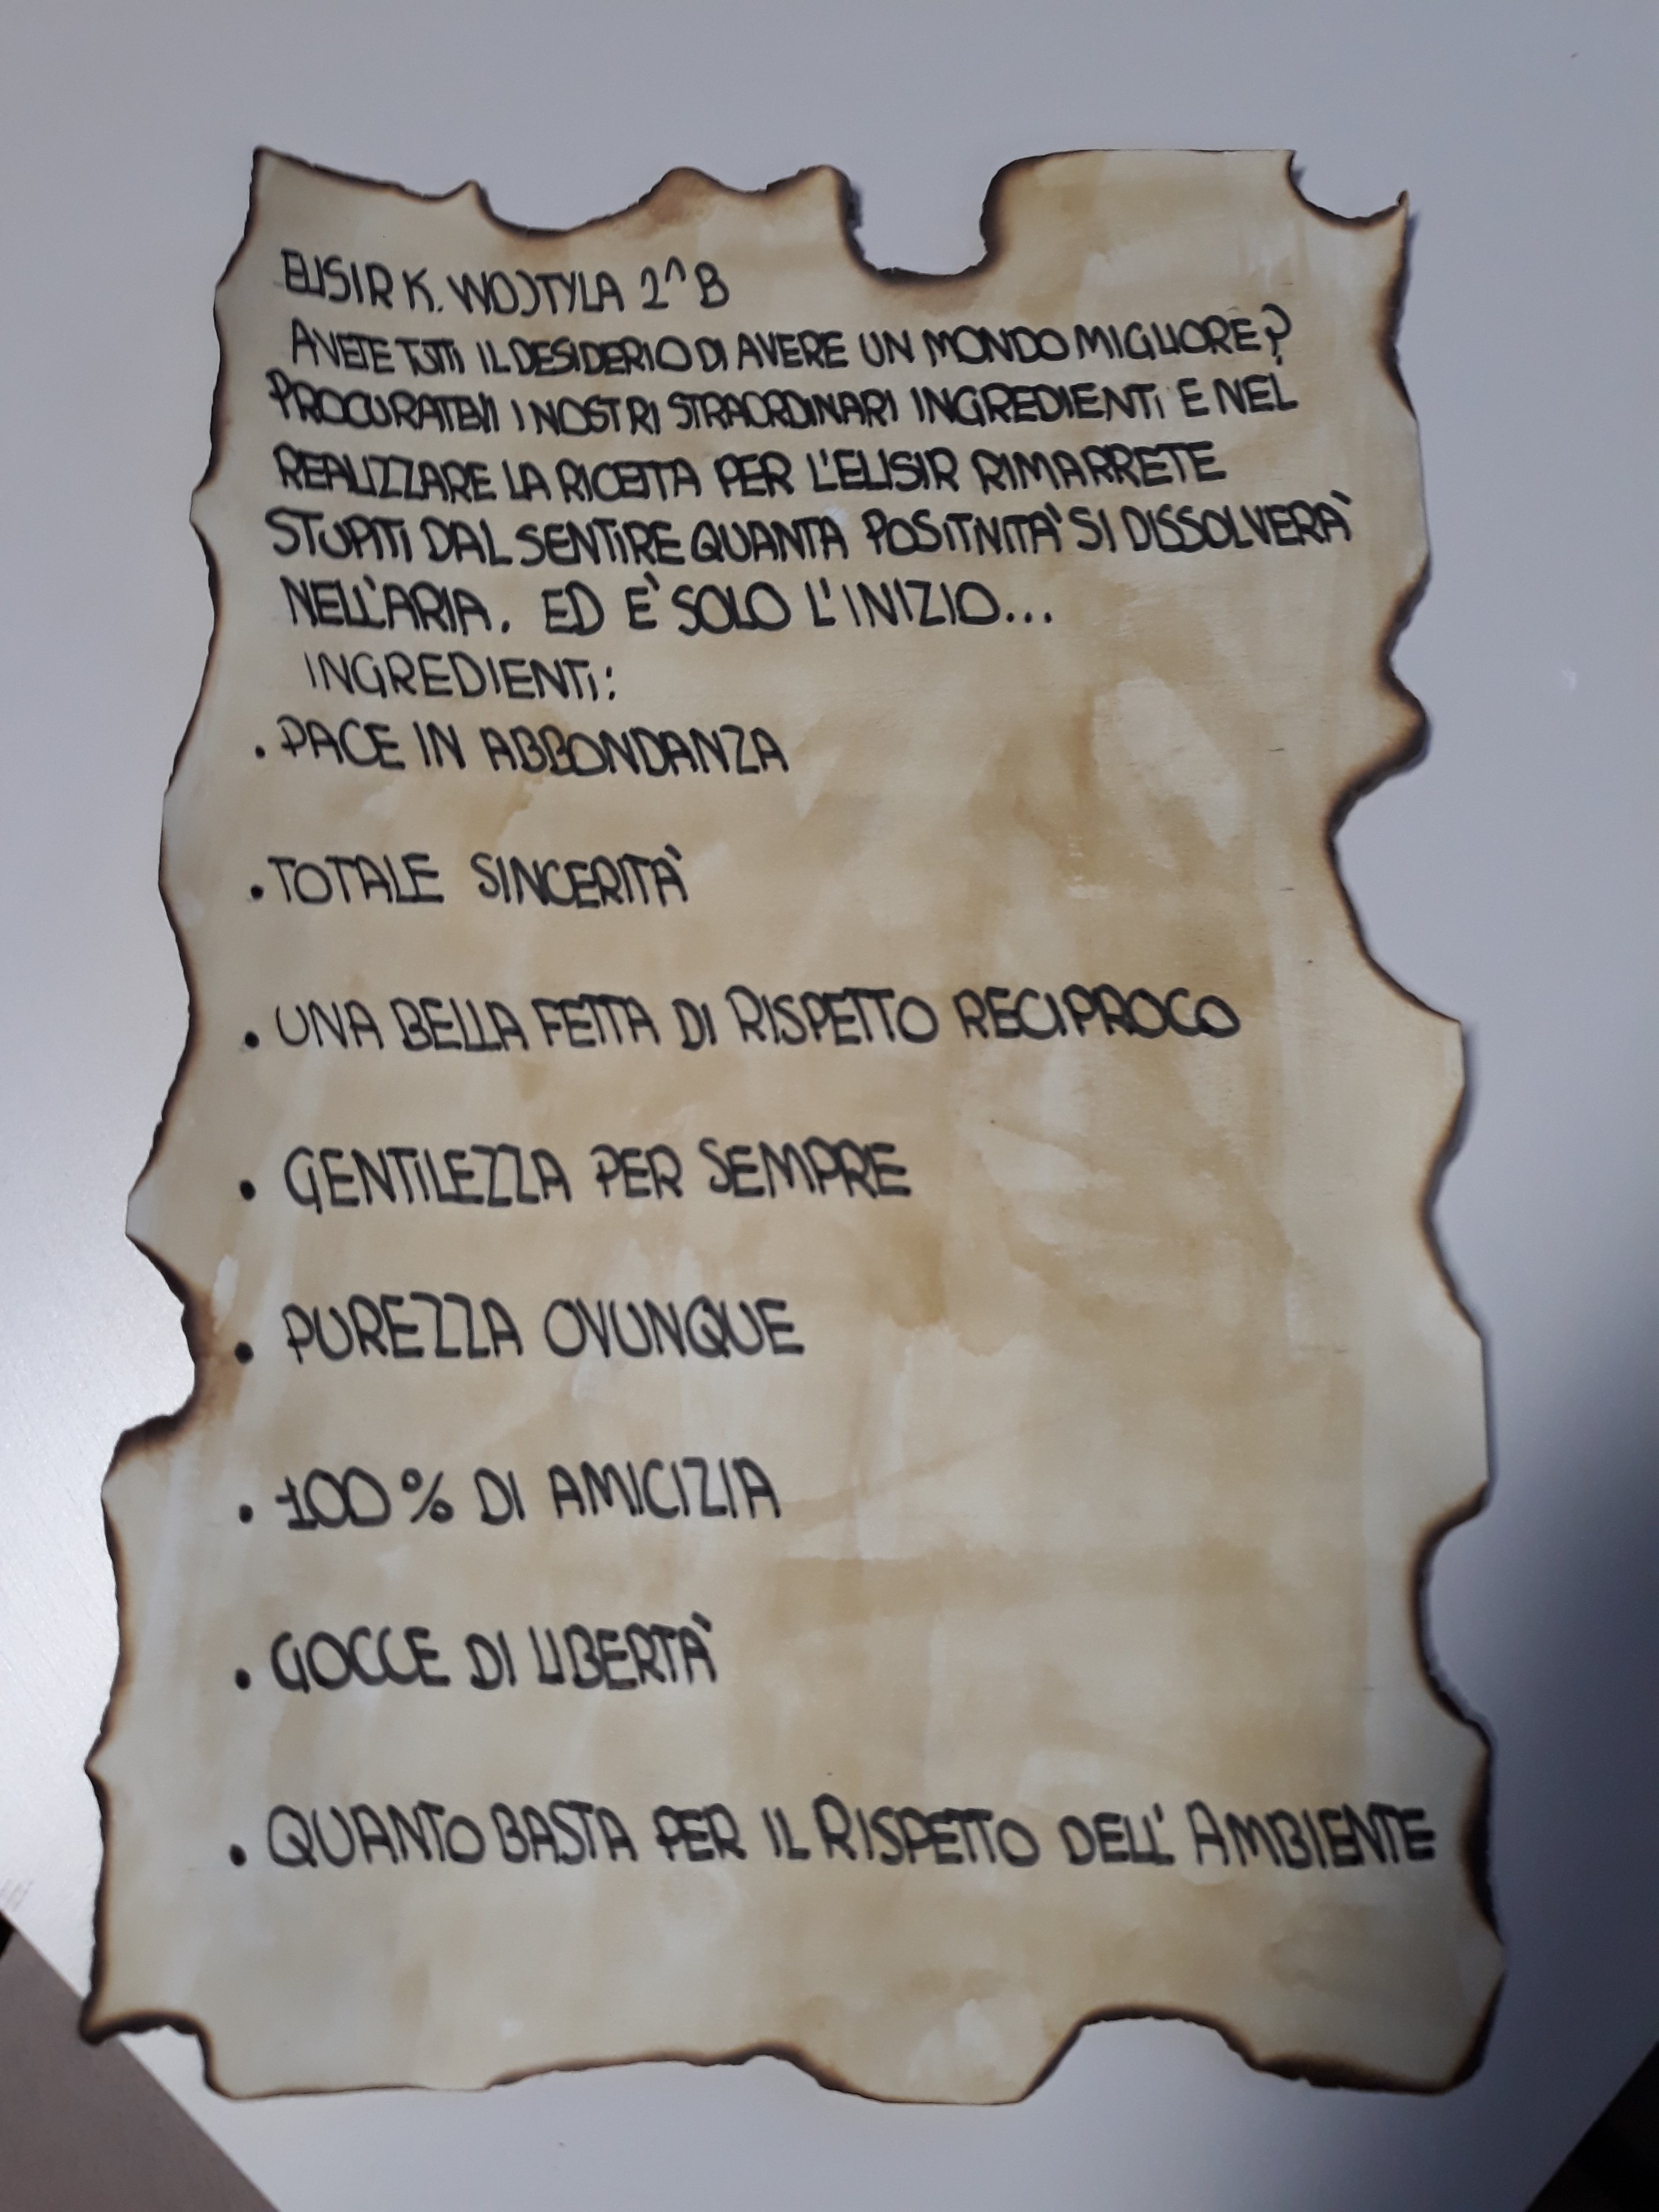 ELISIR K. WOJTYLA 2^B
AVETE TUTTI IL DESIDERIO DI AVERE UN MONDO MIGLIORE?
PROCURATEVI I NOSTRI STRAORDINARI INGREDIENTI E NEL
REALIZZARE LA RICETTA PER L'ELISIR RIMARRETE
STUPITI DAL SENTIRE QUANTA POSITIVITÀ SI DISSOLVERÀ
NELL'ARIA. ED È SOLO L'INIZIO...
INGREDIENTI:
. PACE IN ABBONDANZA
. TOTALE SINCERITÀ
. UNA BELLA FETTA DI RISPETTO RECIPROCO
. GENTILEZZA PER SEMPRE
. PUREZZA OVUNQUE
. 100% DI AMICIZIA
. GOCCE DI LIBERTÀ
. QUANTO BASTA PER IL RISPETTO DELL'AMBIENTE